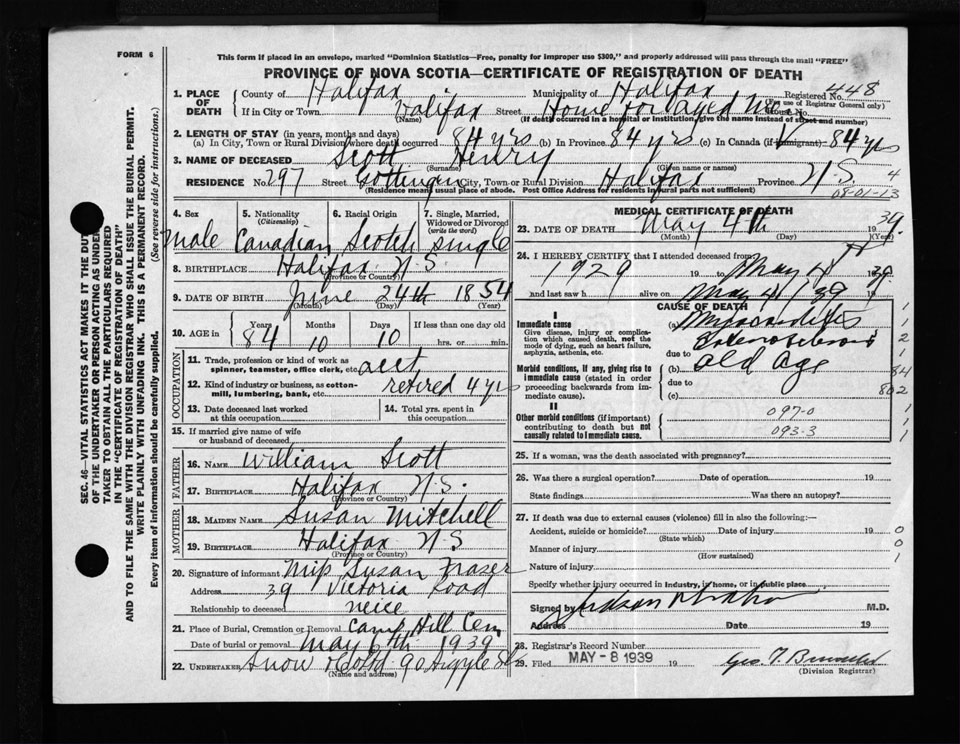 FORM 6
This form if placed in an envelope, marked "Dominion Statistics—Free, penalty for improper use $300," and properly addressed will pass through the mail "FREE"
PROVINCE OF NOVA SCOTIA—CERTIFICATE OF REGISTRATION OF DEATH
448
1. PLACE OF DEATH
County of Halifax Municipality of Halifax Registered No.
(For use of Registrar General only)
If in City or Town Halifax Street Home for Aged Men House No.
(Name) (If death occurred in a hospital or institution, give the name instead of street and number)
2. LENGTH OF STAY (in years, months and days)
(a) In City, Town or Rural Division where death occurred 84 yrs (b) In Province 84 yrs (c) In Canada (if immigrant) 84 yrs
3. NAME OF DECEASED Scott Henry
(Surname) (Given name or names)
RESIDENCE No. 297 Street Gottingen City, Town or Rural Division Halifax Province N.S. 4
(Residence means usual place of abode. Post Office Address for residents in rural parts not sufficient)
08-01-13
SEC. 46—VITAL STATISTICS ACT MAKES IT THE DUTY
OF THE UNDERTAKER OR PERSON ACTING AS UNDER-
TAKER TO OBTAIN ALL THE PARTICULARS REQUIRED
IN THE "CERTIFICATE OF REGISTRATION OF DEATH"
AND TO FILE THE SAME WITH THE DIVISION REGISTRAR WHO SHALL ISSUE THE BURIAL PERMIT.
WRITE PLAINLY WITH UNFADING INK. THIS IS A PERMANENT RECORD.
Every item of information should be carefully supplied. (See reverse side for instructions.)
4. Sex 5. Nationality (Citizenship) 6. Racial Origin 7. Single, Married, Widowed or Divorced (write the word)
male Canadian Scotch single
8. BIRTHPLACE Halifax N.S.
(Province or Country)
9. DATE OF BIRTH June 24th 1854
(Month) (Day) (Year)
10. AGE in Years Months Days If less than one day old
84 10 10 hrs. or min.
OCCUPATION
11. Trade, profession or kind of work as spinner, teamster, office clerk, etc. acct
12. Kind of industry or business, as cotton-mill, lumbering, bank, etc. retired 4 yrs
13. Date deceased last worked at this occupation 14. Total yrs. spent in this occupation
15. If married give name of wife or husband of deceased
FATHER
16. NAME William Scott
17. BIRTHPLACE Halifax N.S.
(Province or Country)
MOTHER
18. MAIDEN NAME Susan Mitchell
19. BIRTHPLACE Halifax N S
(Province or Country)
20. Signature of informant Miss Susan Fraser
Address 39 Victoria Road
Relationship to deceased neice
21. Place of Burial, Cremation or Removal Camp Hill Cem
Date of burial or removal May 6th 1939
22. UNDERTAKER Snow & Co Ltd 90 Argyle St
(Name and address)
MEDICAL CERTIFICATE OF DEATH
23. DATE OF DEATH May 4th 1939.
(Month) (Day) (Year)
24. I HEREBY CERTIFY that I attended deceased from
1929 19 to May 4 1939
and last saw h alive on May 4 1939
CAUSE OF DEATH
I
Immediate cause
Give disease, injury or complication which caused death, not the mode of dying, such as heart failure, asphyxia, asthenia, etc.
(a) Myocarditis
Sclerosis
due to
old age
Morbid conditions, if any, giving rise to immediate cause (stated in order proceeding backwards from immediate cause).
due to
(c)
II
Other morbid conditions (if important) contributing to death but not causally related to immediate cause.
097-0
093-3
1
2
1
84
802
1
1
1
25. If a woman, was the death associated with pregnancy?
26. Was there a surgical operation? Date of operation 19
State findings Was there an autopsy?
27. If death was due to external causes (violence) fill in also the following:—
Accident, suicide or homicide? Date of injury 19 0
(State which)
Manner of injury 0
(How sustained)
Nature of injury 1
Specify whether injury occurred in industry, in home, or in public place
Signed by M.D.
Address Date 19
28. Registrar's Record Number
29. Filed MAY - 8 1939 19
(Division Registrar)